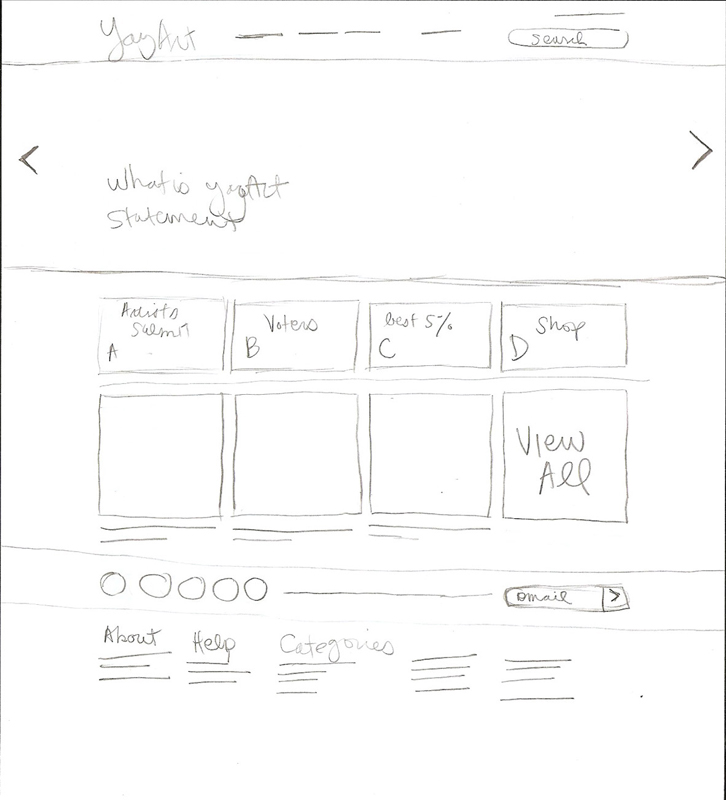 YayArt
search
<
>
What is yayArt
Statement
Artists
Submit
A
Voters
B
best 5%
C
Shop
D
View
All
email >
About
Help
Categories